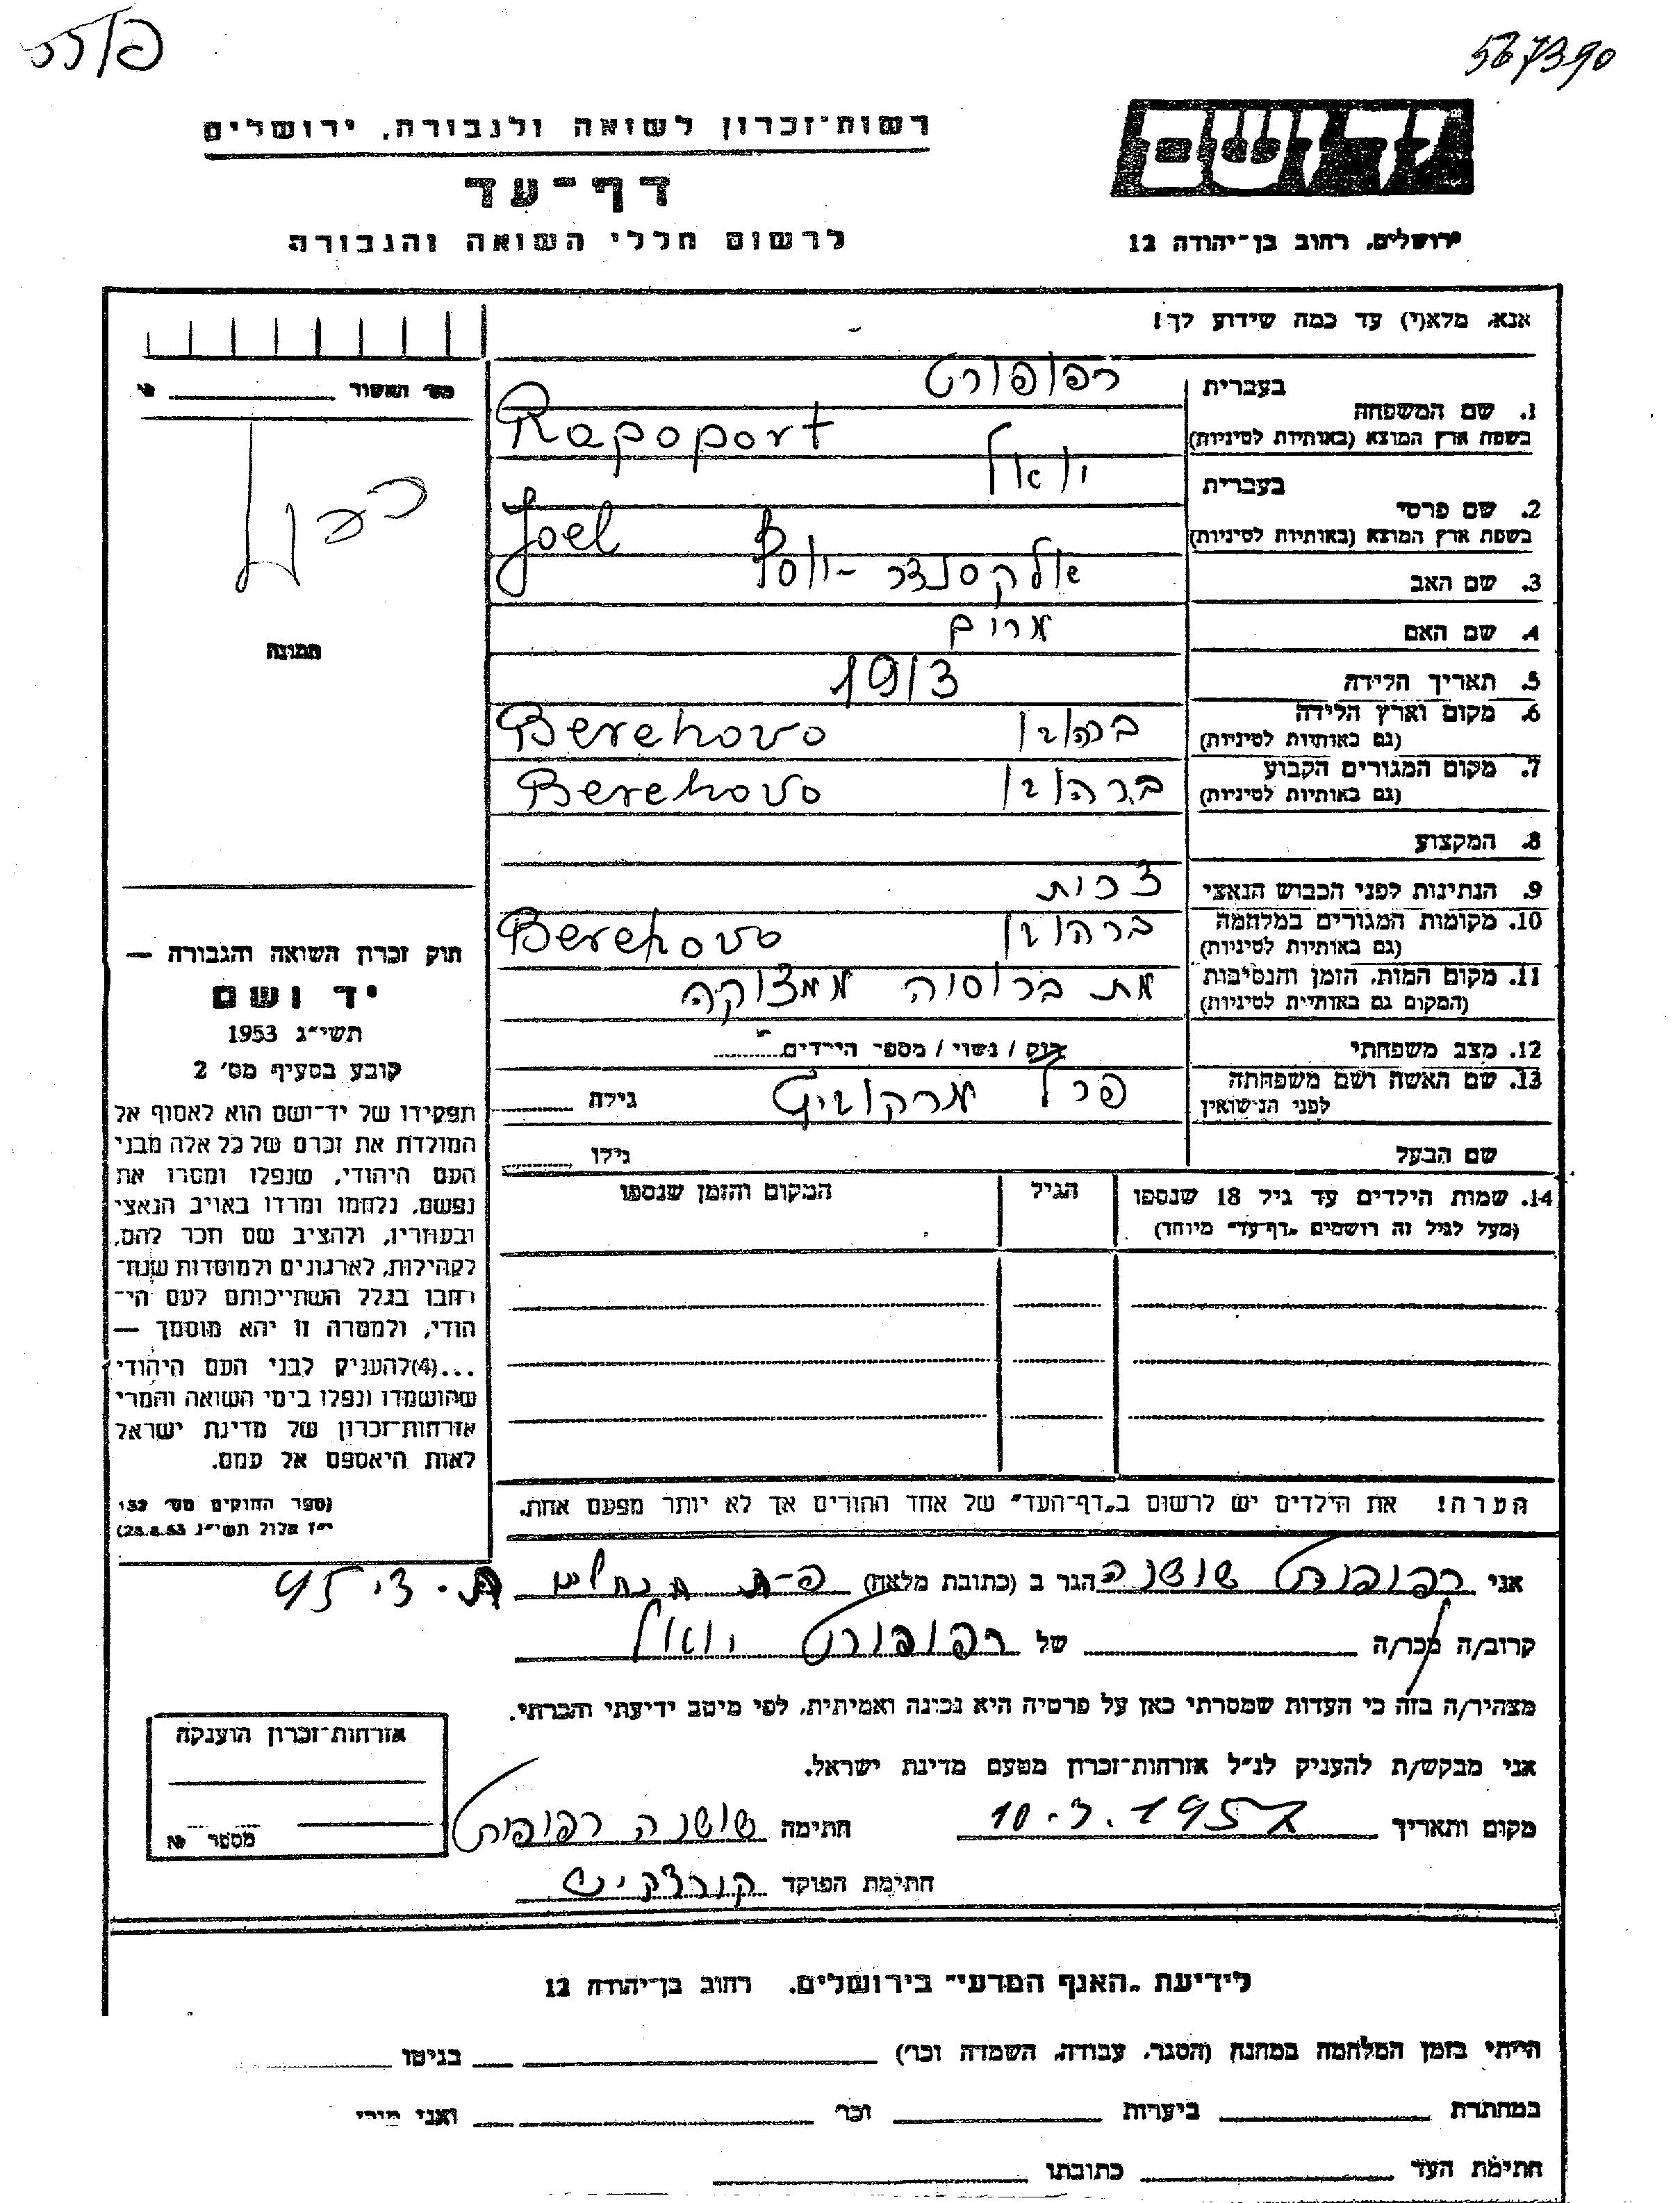 567390
רשות־זכרון לשואה ולגבורה, ירושלים
דף־עד
לרשום חללי השואה והגבורה
יד ושם
ירושלים, רחוב בן־יהודה 12
אנא, מלא(י) עד כמה שידוע לך!
מס' האשור
תמונה
1. שם המשפחה
בעברית רפופורט
בשפת ארץ המוצא (באותיות לטיניות) Rapoport
2. שם פרטי
בעברית יואל
בשפת ארץ המוצא (באותיות לטיניות) Joel
3. שם האב אלקסנדר - יוסף
4. שם האם מרים
5. תאריך הלידה 1913
6. מקום וארץ הלידה ברהובו Berehovo
(גם באותיות לטיניות)
7. מקום המגורים הקבוע ברהובו Berehovo
(גם באותיות לטיניות)
8. המקצוע
9. הנתינות לפני הכבוש הנאצי צכית
10. מקומות המגורים במלחמה ברהובו Berehovo
(גם באותיות לטיניות)
11. מקום המות, הזמן והנסיבות מת ברוסיה ממצוקה
(המקום גם באותיות לטיניות)
12. מצב משפחתי רווק / נשוי / מספר הילדים
13. שם האשה ושם משפחתה פרל מרקוביץ גילה
לפני הנישואין
שם הבעל גילו
14. שמות הילדים עד גיל 18 שנספו הגיל המקום והזמן שנספו
(מעל לגיל זה רושמים „דף־עד" מיוחד)
הערה! את הילדים יש לרשום ב„דף־העד" של אחד ההורים אך לא יותר מפעם אחת.
חוק זכרון השואה והגבורה —
יד ושם
תשי"ג 1953
קובע בסעיף מס' 2
תפקידו של יד־ושם הוא לאסוף אל
המולדת את זכרם של כל אלה מבני
העם היהודי, שנפלו ומסרו את
נפשם, נלחמו ומרדו באויב הנאצי
ובעוזריו, ולהציב שם וזכר להם,
לקהילות, לארגונים ולמוסדות שנח־
רבו בגלל השתייכותם לעם הי־
הודי, ולמטרה זו יהא מוסמך —
...(4)להעניק לבני העם היהודי
שהושמדו ונפלו בימי השואה והמרי
אזרחות־זכרון של מדינת ישראל
לאות היאספם אל עמם.
(ספר החוקים מס' 132
י"ז אלול תשי"ג 28.8.53)
אני רפופורט שושנה הגר ב (כתובת מלאה) 95
קרוב/ה מכר/ה של רפופורט יואל
מצהיר/ה בזה כי העדות שמסרתי כאן על פרטיה היא נכונה ואמיתית, לפי מיטב ידיעתי והכרתי.
אני מבקש/ת להעניק לנ"ל אזרחות־זכרון מטעם מדינת ישראל.
מקום ותאריך חתימה שושנה רפופורט
חתימת הפוקד
אזרחות־זכרון הוענקה
מספר №
לידיעת „האגף המדעי" בירושלים, רחוב בן־יהודה 12
הייתי בזמן המלחמה במחנה (הסגר, עבודה, השמדה וכו') בגיטו
במחתרת ביערות וכו'
חתימת העד כתובתו